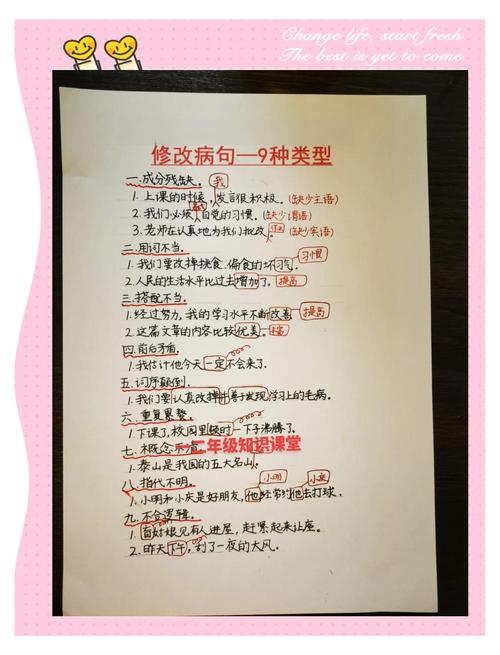 Change life, start fresh.
The best is yet to come.
修改病句—9种类型
一.成分残缺。 我
1. 上课的时候,发言很积极。(缺少主语)
2. 我们必须 养成 自觉的习惯。(缺少谓语)
3. 老师在认真地为我们批改 作业。(缺少宾语)
二.用词不当。
1. 我们要改掉挑食、偏食的坏习气。 习惯
2. 人民的生活水平比过去增加了。 提高
三.搭配不当。
1. 经过努力,我的学习水平不断改善 提高
2. 这篇文章的内容比较优美。 丰富
四.前后矛盾。
1. 我估计他今天一定不会来了。
五.词序颠倒。
1. 我们要认真改掉并善于发现学习上的毛病。
六.重复累赘。
1. 下课了,校园里顿时一下子沸腾了。
七.概念不清。
一二年级知识课堂
1. 泰山是我国的五大名山。
八.指代不明。 小明 小庆
1. 小明和小庆是好朋友,他经常约他去打球。
九.不合逻辑。
1. 盲姑娘见有人进屋,赶紧起来让座。
2. 昨天下午,刮了一夜的大风。